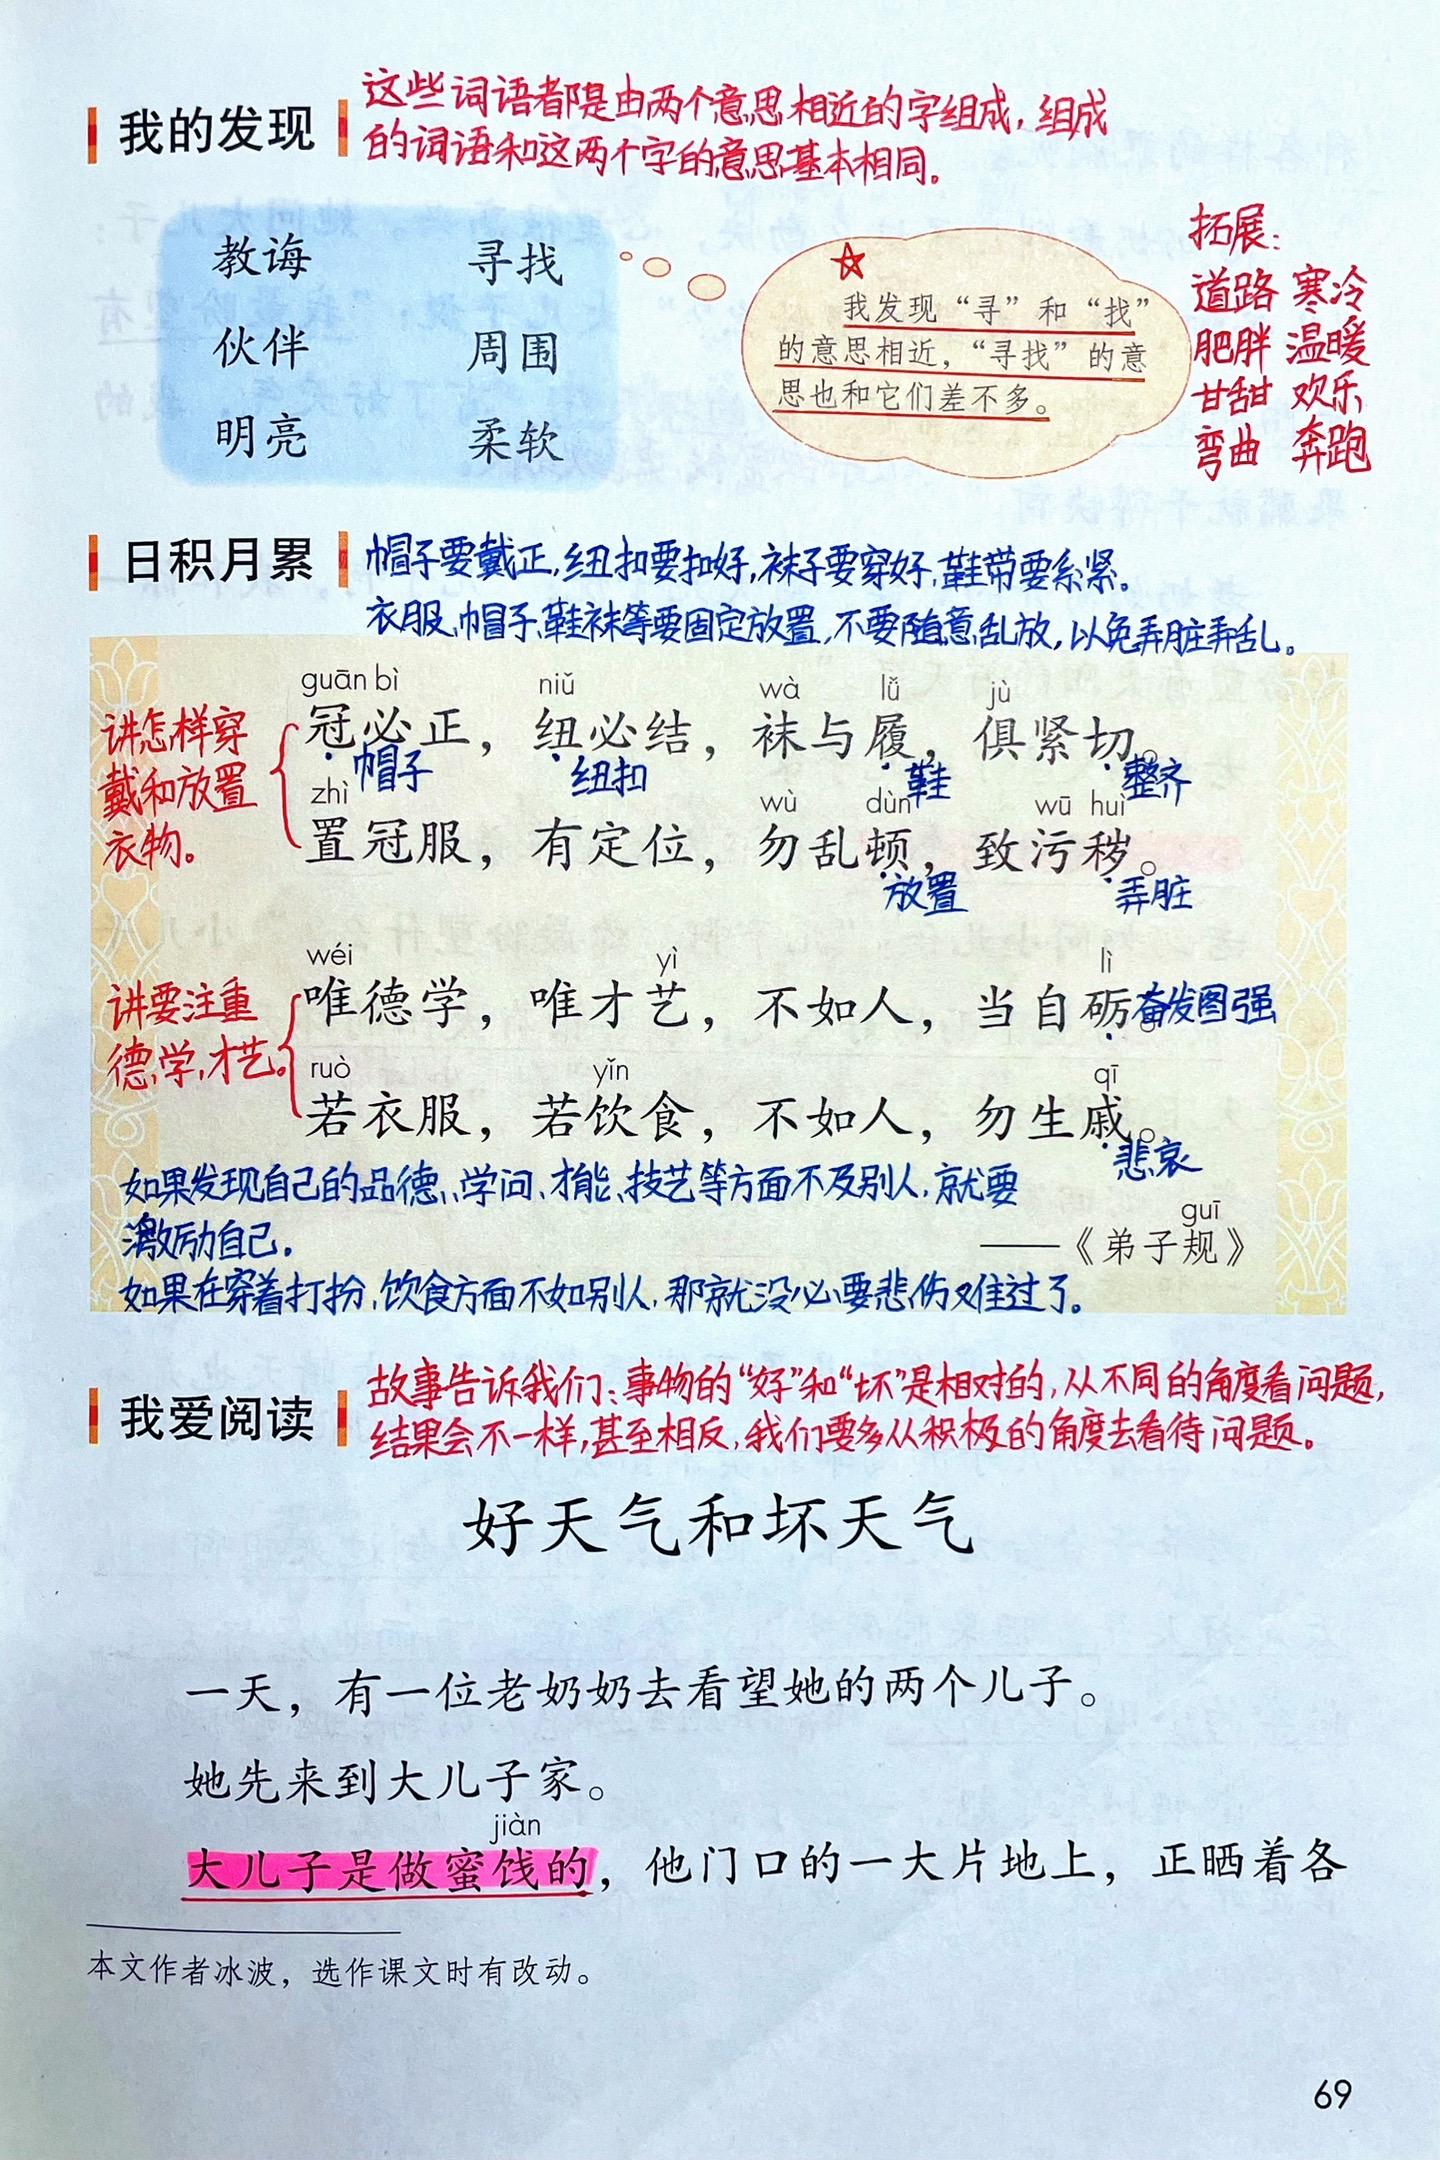 我的发现
这些词语都是由两个意思相近的字组成，组成
的词语和这两个字的意思基本相同。
教诲 寻找
伙伴 周围
明亮 柔软
我发现“寻”和“找”
的意思相近，“寻找”的意
思也和它们差不多。
拓展：
道路 寒冷
肥胖 温暖
甘甜 欢乐
弯曲 奔跑
日积月累
帽子要戴正，纽扣要扣好，袜子要穿好，鞋带要系紧。
衣服、帽子、鞋袜等要固定放置，不要随意乱放，以免弄脏弄乱。
讲怎样穿
戴和放置
衣物。
guān bì niǔ wà lǚ jù
冠必正，纽必结，袜与履，俱紧切。
帽子 纽扣 鞋 整齐
zhì wù dùn wū huì
置冠服，有定位，勿乱顿，致污秽。
放置 弄脏
讲要注重
德，学，才艺。
wéi yì lì
唯德学，唯才艺，不如人，当自砺。
奋发图强
ruò yǐn qī
若衣服，若饮食，不如人，勿生戚。
悲哀
如果发现自己的品德、学问、才能、技艺等方面不及别人，就要
激励自己。
guī
——《弟子规》
如果在穿着打扮，饮食方面不如别人，那就没必要悲伤难过了。
我爱阅读
故事告诉我们：事物的“好”和“坏”是相对的，从不同的角度看问题，
结果会不一样，甚至相反，我们要多从积极的角度去看待问题。
好天气和坏天气
一天，有一位老奶奶去看望她的两个儿子。
她先来到大儿子家。
jiàn
大儿子是做蜜饯的，他门口的一大片地上，正晒着各
本文作者冰波，选作课文时有改动。
69